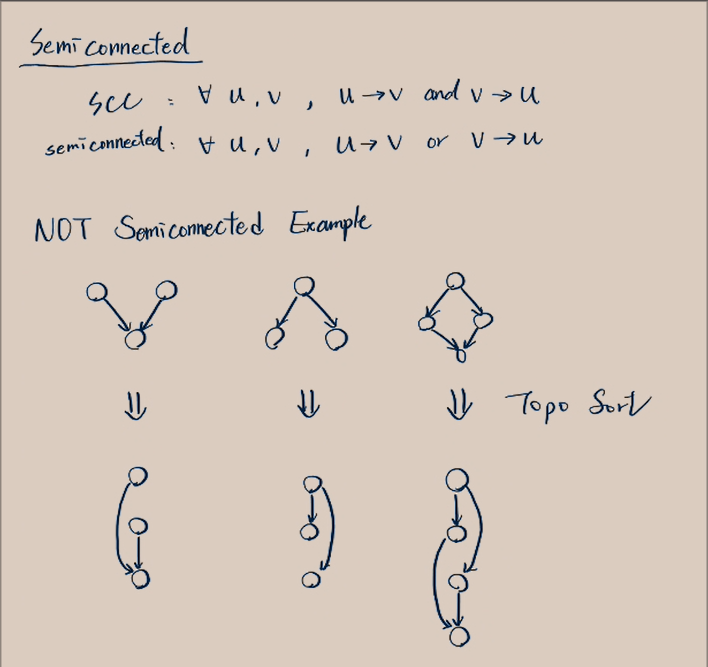 Semiconnected
SCC : ∀ u, v , u → v and v → u
semiconnected: ∀ u, v , u → v or v → u
NOT Semiconnected Example
⇓ ⇓ ⇓ Topo Sort